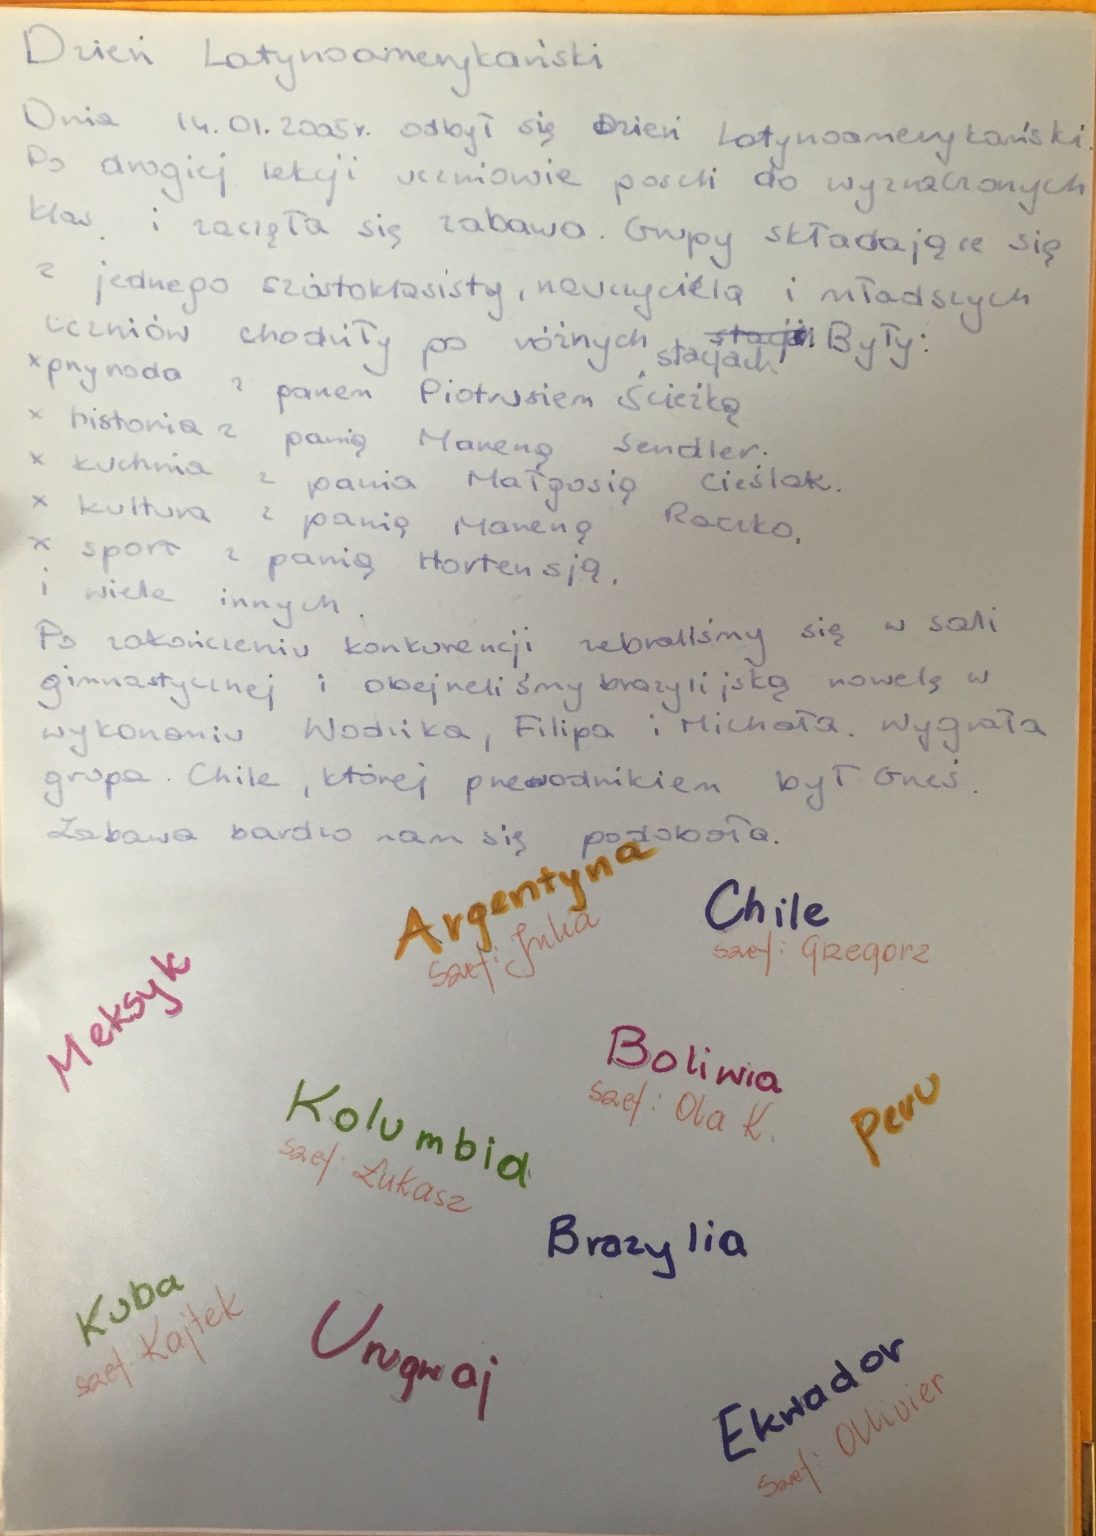 Dzień Latynoamerykański
Dnia 14.01.2005r. odbył się Dzień Latynoamerykański.
Po drugiej lekcji uczniowie poszli do wyznaczonych
klas. i zaczęła się zabawa. Grupy składające się
z jednego szóstoklasisty, nauczyciela i młodszych
uczniów chodziły po różnych stacji. stacjach Były:
x przyroda z panem Piotrusiem Ścieżką
x historia z panią Marzeną Sendler.
x kuchnia z pania Małgosią Cieślak.
x kultura z panią Marzeną Raczko.
x sport z panią Hortensją.
i wiele innych.
Po zakończeniu konkurencji zebraliśmy się w sali
gimnastycznej i obejrzeliśmy brazylijską nowelę w
wykonaniu Wodzika, Filipa i Michała. Wygrała
grupa. Chile, której przewodnikiem był Grześ.
Zabawa bardzo nam się podobała.
Argentyna
szef: Julia
Chile
szef: Grzegorz
Meksyk
Boliwia
szef: Ola K.
Peru
Kolumbia
szef: Łukasz
Brazylia
Kuba
szef: Kajtek
Urugwaj
Ekwador
szef: Ollivier